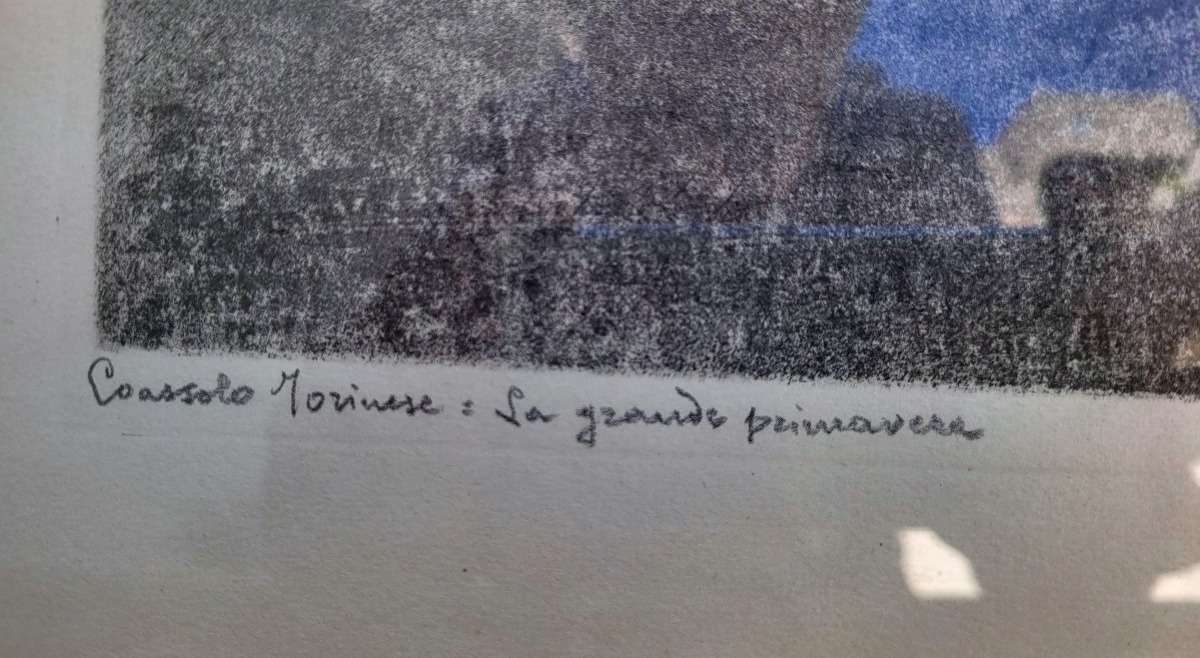 Coassolo Torinese : La grande primavera